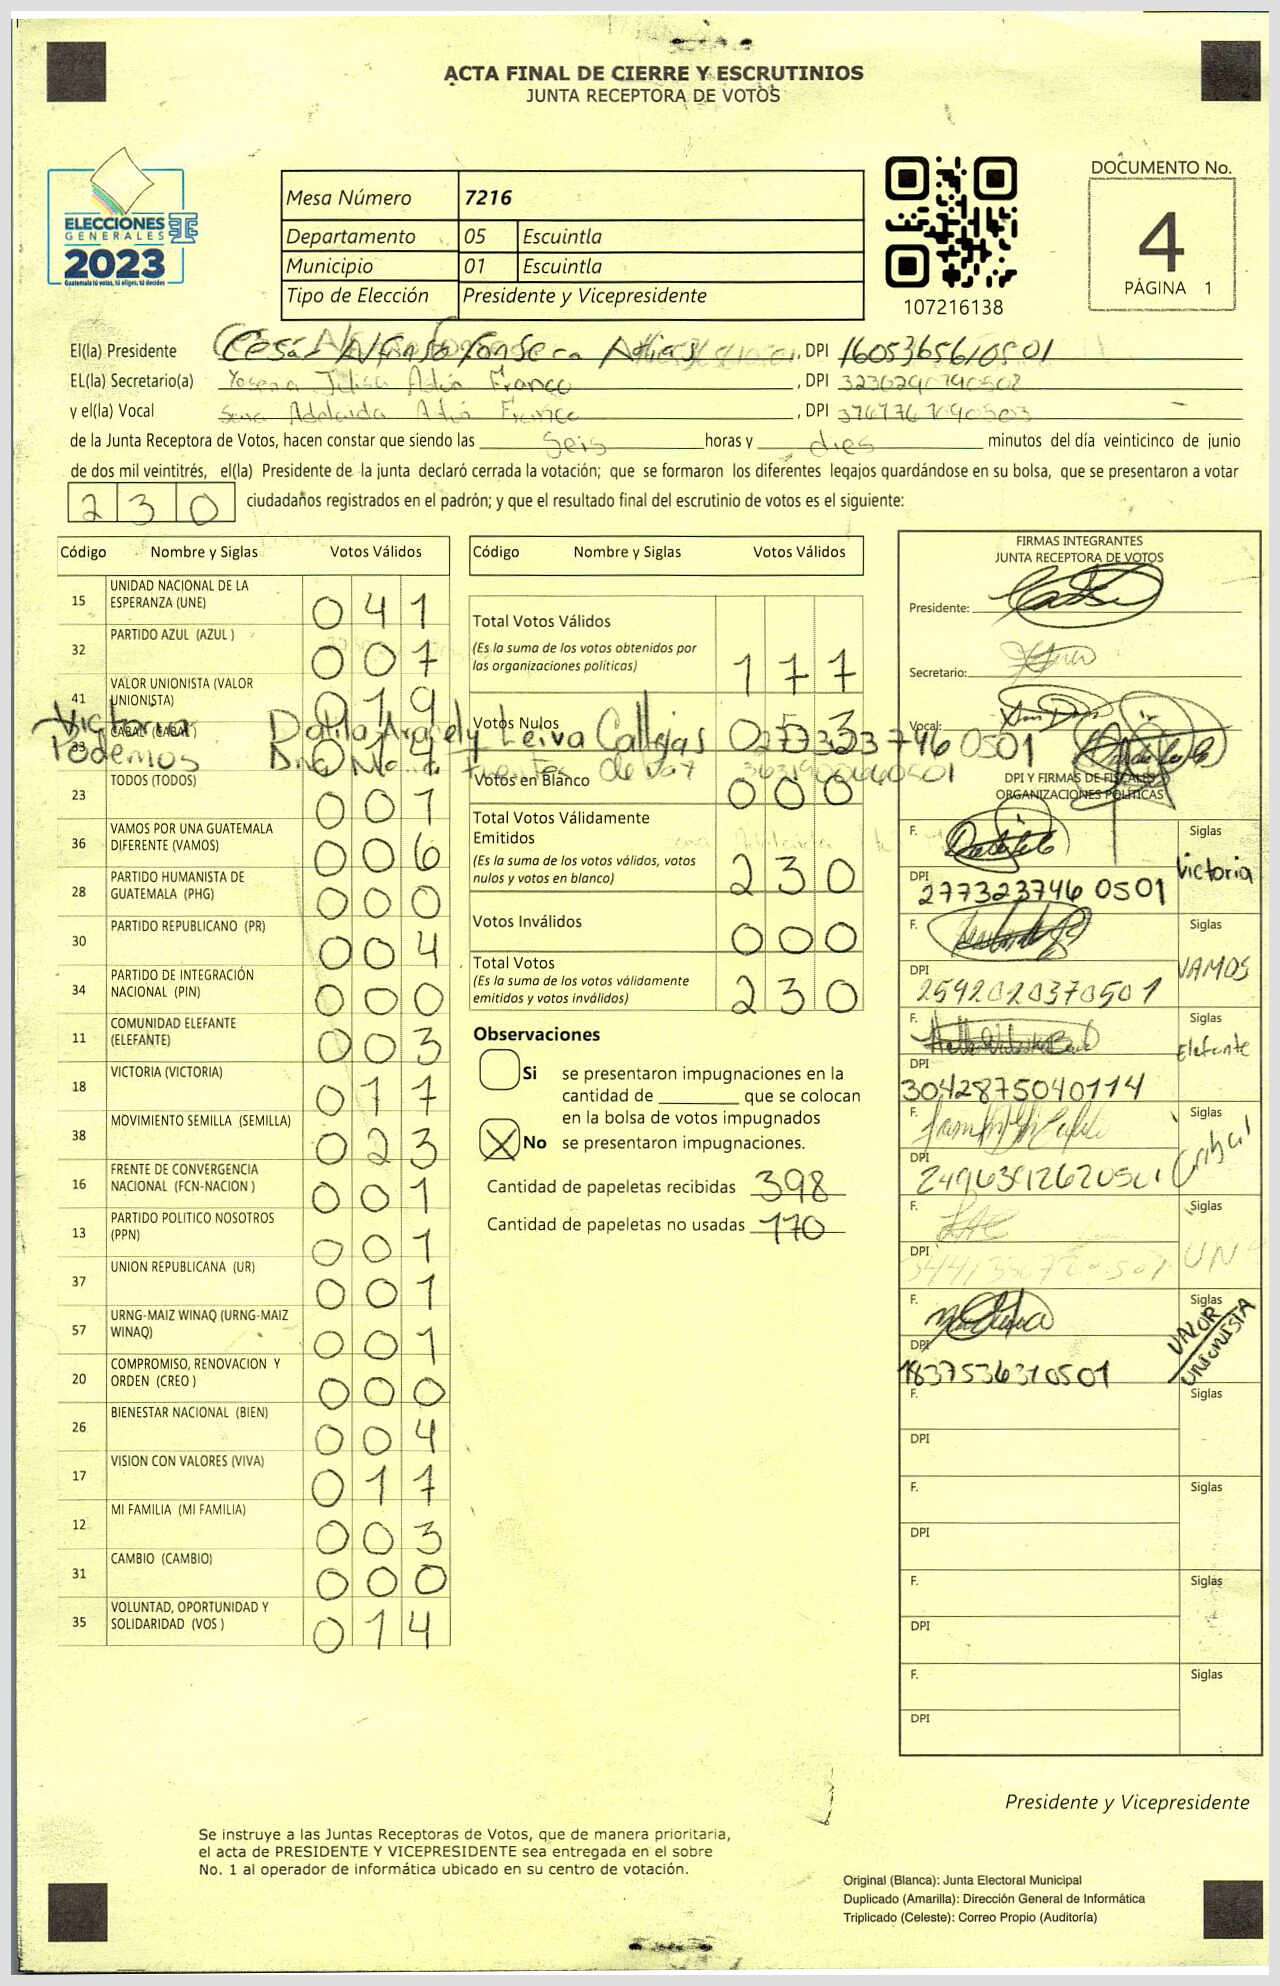 ACTA FINAL DE CIERRE Y ESCRUTINIOS
JUNTA RECEPTORA DE VOTOS
ELECCIONES
GENERALES
2023
Guatemala tú votas, tú eliges, tú decides
Mesa Número 7216
Departamento 05 Escuintla
Municipio 01 Escuintla
Tipo de Elección Presidente y Vicepresidente
107216138
DOCUMENTO No.
4
PÁGINA 1
El(la) Presidente César Fonseca, DPI 1605365610501
EL(la) Secretario(a) Franco, DPI
y el(la) Vocal Adelaida Franco, DPI
de la Junta Receptora de Votos, hacen constar que siendo las Seis horas y dies minutos del día veinticinco de junio
de dos mil veintitrés, el(la) Presidente de la junta declaró cerrada la votación; que se formaron los diferentes legajos guardándose en su bolsa, que se presentaron a votar
230 ciudadaños registrados en el padrón; y que el resultado final del escrutinio de votos es el siguiente:
Código Nombre y Siglas Votos Válidos
15 UNIDAD NACIONAL DE LA ESPERANZA (UNE) 041
32 PARTIDO AZUL (AZUL ) 007
41 VALOR UNIONISTA (VALOR UNIONISTA) 019
33 CABAL (CABAL )
Victoria Dalila Aracely Leiva Callejas 0501
Podemos
23 TODOS (TODOS) 001
36 VAMOS POR UNA GUATEMALA DIFERENTE (VAMOS) 006
28 PARTIDO HUMANISTA DE GUATEMALA (PHG) 000
30 PARTIDO REPUBLICANO (PR) 004
34 PARTIDO DE INTEGRACIÓN NACIONAL (PIN) 000
11 COMUNIDAD ELEFANTE (ELEFANTE) 003
18 VICTORIA (VICTORIA) 017
38 MOVIMIENTO SEMILLA (SEMILLA) 023
16 FRENTE DE CONVERGENCIA NACIONAL (FCN-NACION ) 001
13 PARTIDO POLITICO NOSOTROS (PPN) 001
37 UNION REPUBLICANA (UR) 001
57 URNG-MAIZ WINAQ (URNG-MAIZ WINAQ) 001
20 COMPROMISO, RENOVACION Y ORDEN (CREO ) 000
26 BIENESTAR NACIONAL (BIEN) 004
17 VISION CON VALORES (VIVA) 017
12 MI FAMILIA (MI FAMILIA) 003
31 CAMBIO (CAMBIO) 000
35 VOLUNTAD, OPORTUNIDAD Y SOLIDARIDAD (VOS ) 014
Código Nombre y Siglas Votos Válidos
Total Votos Válidos
(Es la suma de los votos obtenidos por
las organizaciones políticas) 177
Votos Nulos 053
Votos en Blanco 000
Total Votos Válidamente
Emitidos
(Es la suma de los votos válidos, votos
nulos y votos en blanco) 230
Votos Inválidos 000
Total Votos
(Es la suma de los votos válidamente
emitidos y votos inválidos) 230
Observaciones
Si se presentaron impugnaciones en la
cantidad de ________ que se colocan
en la bolsa de votos impugnados
X No se presentaron impugnaciones.
Cantidad de papeletas recibidas 398
Cantidad de papeletas no usadas 170
FIRMAS INTEGRANTES
JUNTA RECEPTORA DE VOTOS
Presidente:
Secretario:
Vocal:
DPI Y FIRMAS DE FISCALES
ORGANIZACIONES POLÍTICAS
F. Siglas
DPI 277323746 0501 Victoria
F. Siglas
DPI 2592020370501 VAMOS
F. Siglas
DPI 3042875040114 Elefante
F. Siglas
DPI
F. Siglas
DPI
F. Siglas
DPI 1837536310501 VALOR UNIONISTA
F. Siglas
DPI
F. Siglas
DPI
F. Siglas
DPI
F. Siglas
DPI
Presidente y Vicepresidente
Se instruye a las Juntas Receptoras de Votos, que de manera prioritaria,
el acta de PRESIDENTE Y VICEPRESIDENTE sea entregada en el sobre
No. 1 al operador de informática ubicado en su centro de votación.
Original (Blanca): Junta Electoral Municipal
Duplicado (Amarilla): Dirección General de Informática
Triplicado (Celeste): Correo Propio (Auditoría)